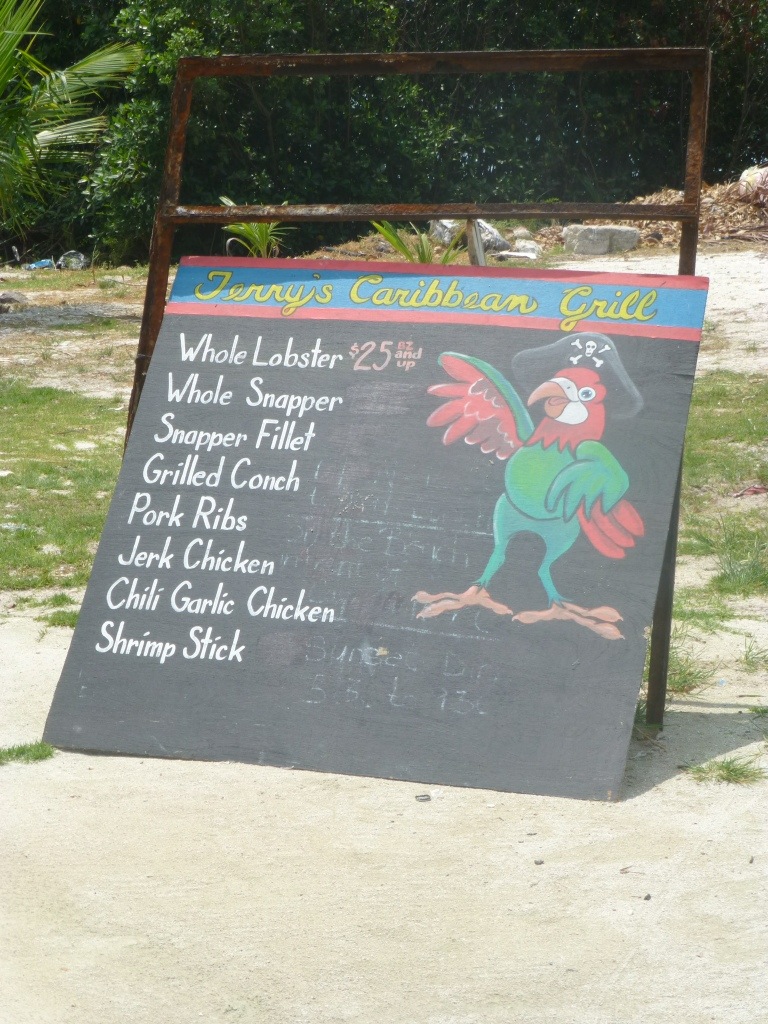 Terry's Caribbean Grill
Whole Lobster $25 BZ and up
Whole Snapper
Snapper Fillet
Grilled Conch
Pork Ribs
Jerk Chicken
Chili Garlic Chicken
Shrimp Stick